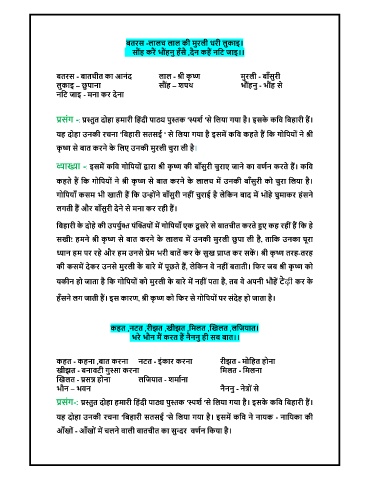 बतरस -लालच लाल की मुरली धरी लुकाइ।
सौंह करे भौंहनु हँसै ,दैन कहैं नटि जाइ।।
बतरस - बातचीत का आनंद लाल - श्री कृष्ण मुरली - बाँसुरी
लुकाइ – छुपाना सौंह – शपथ भौंहनु - भौंह से
नटि जाइ - मना कर देना
प्रसंग -: प्रस्तुत दोहा हमारी हिंदी पाठ्य पुस्तक 'स्पर्श 'से लिया गया है। इसके कवि बिहारी हैं।
यह दोहा उनकी रचना 'बिहारी सतसई ' से लिया गया है इसमें कवि कहते हैं कि गोपियों ने श्री
कृष्ण से बात करने के लिए उनकी मुरली चुरा ली है।
व्याख्या -: इसमें कवि गोपियों द्वारा श्री कृष्ण की बाँसुरी चुराए जाने का वर्णन करते हैं। कवि
कहते हैं कि गोपियों ने श्री कृष्ण से बात करने के लालच में उनकी बाँसुरी को चुरा लिया है।
गोपियाँ कसम भी खाती हैं कि उन्होंने बाँसुरी नहीं चुराई है लेकिन बाद में भोंहे घुमाकर हंसने
लगती हैं और बाँसुरी देने से मना कर रही हैं।
बिहारी के दोहे की उपर्युक्त पंक्तियों में गोपियाँ एक दूसरे से बातचीत करते हुए कह रहीं हैं कि हे
सखी! हमने श्री कृष्ण से बात करने के लालच में उनकी मुरली छुपा ली है, ताकि उनका पूरा
ध्यान हम पर रहे और हम उनसे प्रेम भरी बातें कर के सुख प्राप्त कर सकें। श्री कृष्ण तरह-तरह
की कसमें देकर उनसे मुरली के बारे में पूछते हैं, लेकिन वे नहीं बताती। फिर जब श्री कृष्ण को
यकीन हो जाता है कि गोपियों को मुरली के बारे में नहीं पता है, तब वे अपनी भौहें टेढ़ी कर के
हँसने लग जाती हैं। इस कारण, श्री कृष्ण को फिर से गोपियों पर संदेह हो जाता है।
कहत ,नटत ,रीझत ,खीझत ,मिलत ,खिलत ,लजियात।
भरे भौन मैं करत हैं नैननु ही सब बात।।
कहत - कहना ,बात करना नटत - इंकार करना रीझत - मोहित होना
खीझत - बनावटी गुस्सा करना मिलत - मिलना
खिलत - प्रसन्न होना लजियात - शर्माना
भौन – भवन नैननु - नेत्रों से
प्रसंग-: प्रस्तुत दोहा हमारी हिंदी पाठ्य पुस्तक 'स्पर्श 'से लिया गया है। इसके कवि बिहारी हैं।
यह दोहा उनकी रचना 'बिहारी सतसई 'से लिया गया है। इसमें कवि ने नायक - नायिका की
आँखों - आँखों में चलने वाली बातचीत का सुन्दर वर्णन किया है।